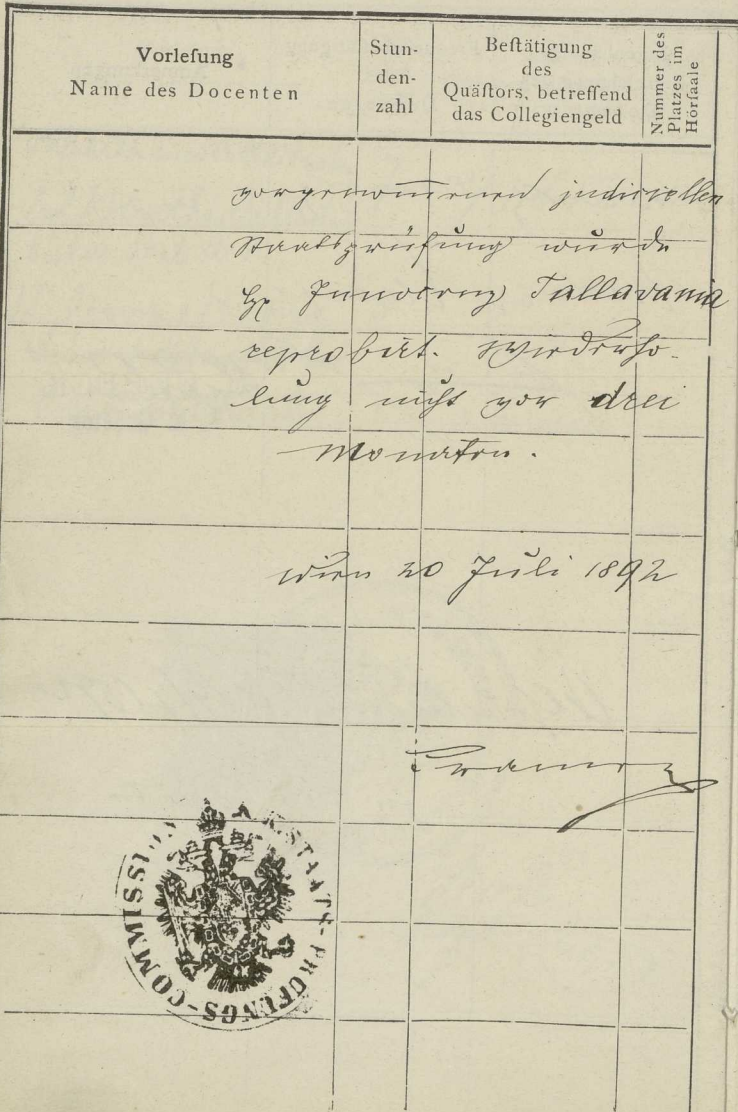 Vorleſung
Name des Docenten
Stun-
den-
zahl
Beſtätigung
des
Quäſtors, betreffend
das Collegiengeld
Nummer des
Platzes im
Hörſaale
vorgenom̅enen judiciellen
Staatsprüfung wurde
H Innocenz Tallavania
reprobirt. Wiederho-
lung nicht vor drei
Monaten.
Wien 20 Juli 1892
K.K. STAATS-PRÜFUNGS-COMMISSION